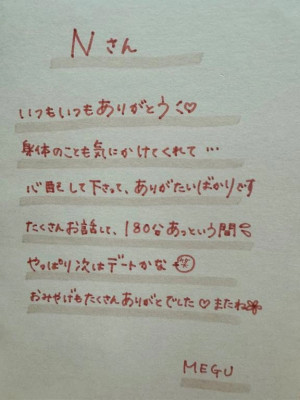 Nさん
いつもいつもありがとう♡
身体のことも気にかけてくれて…
心配して下さって、ありがたいばかりです
たくさんお話して、180分あっという間
やっぱり次はデートかな 笑
おみやげもたくさんありがとでした♡またね
MEGU